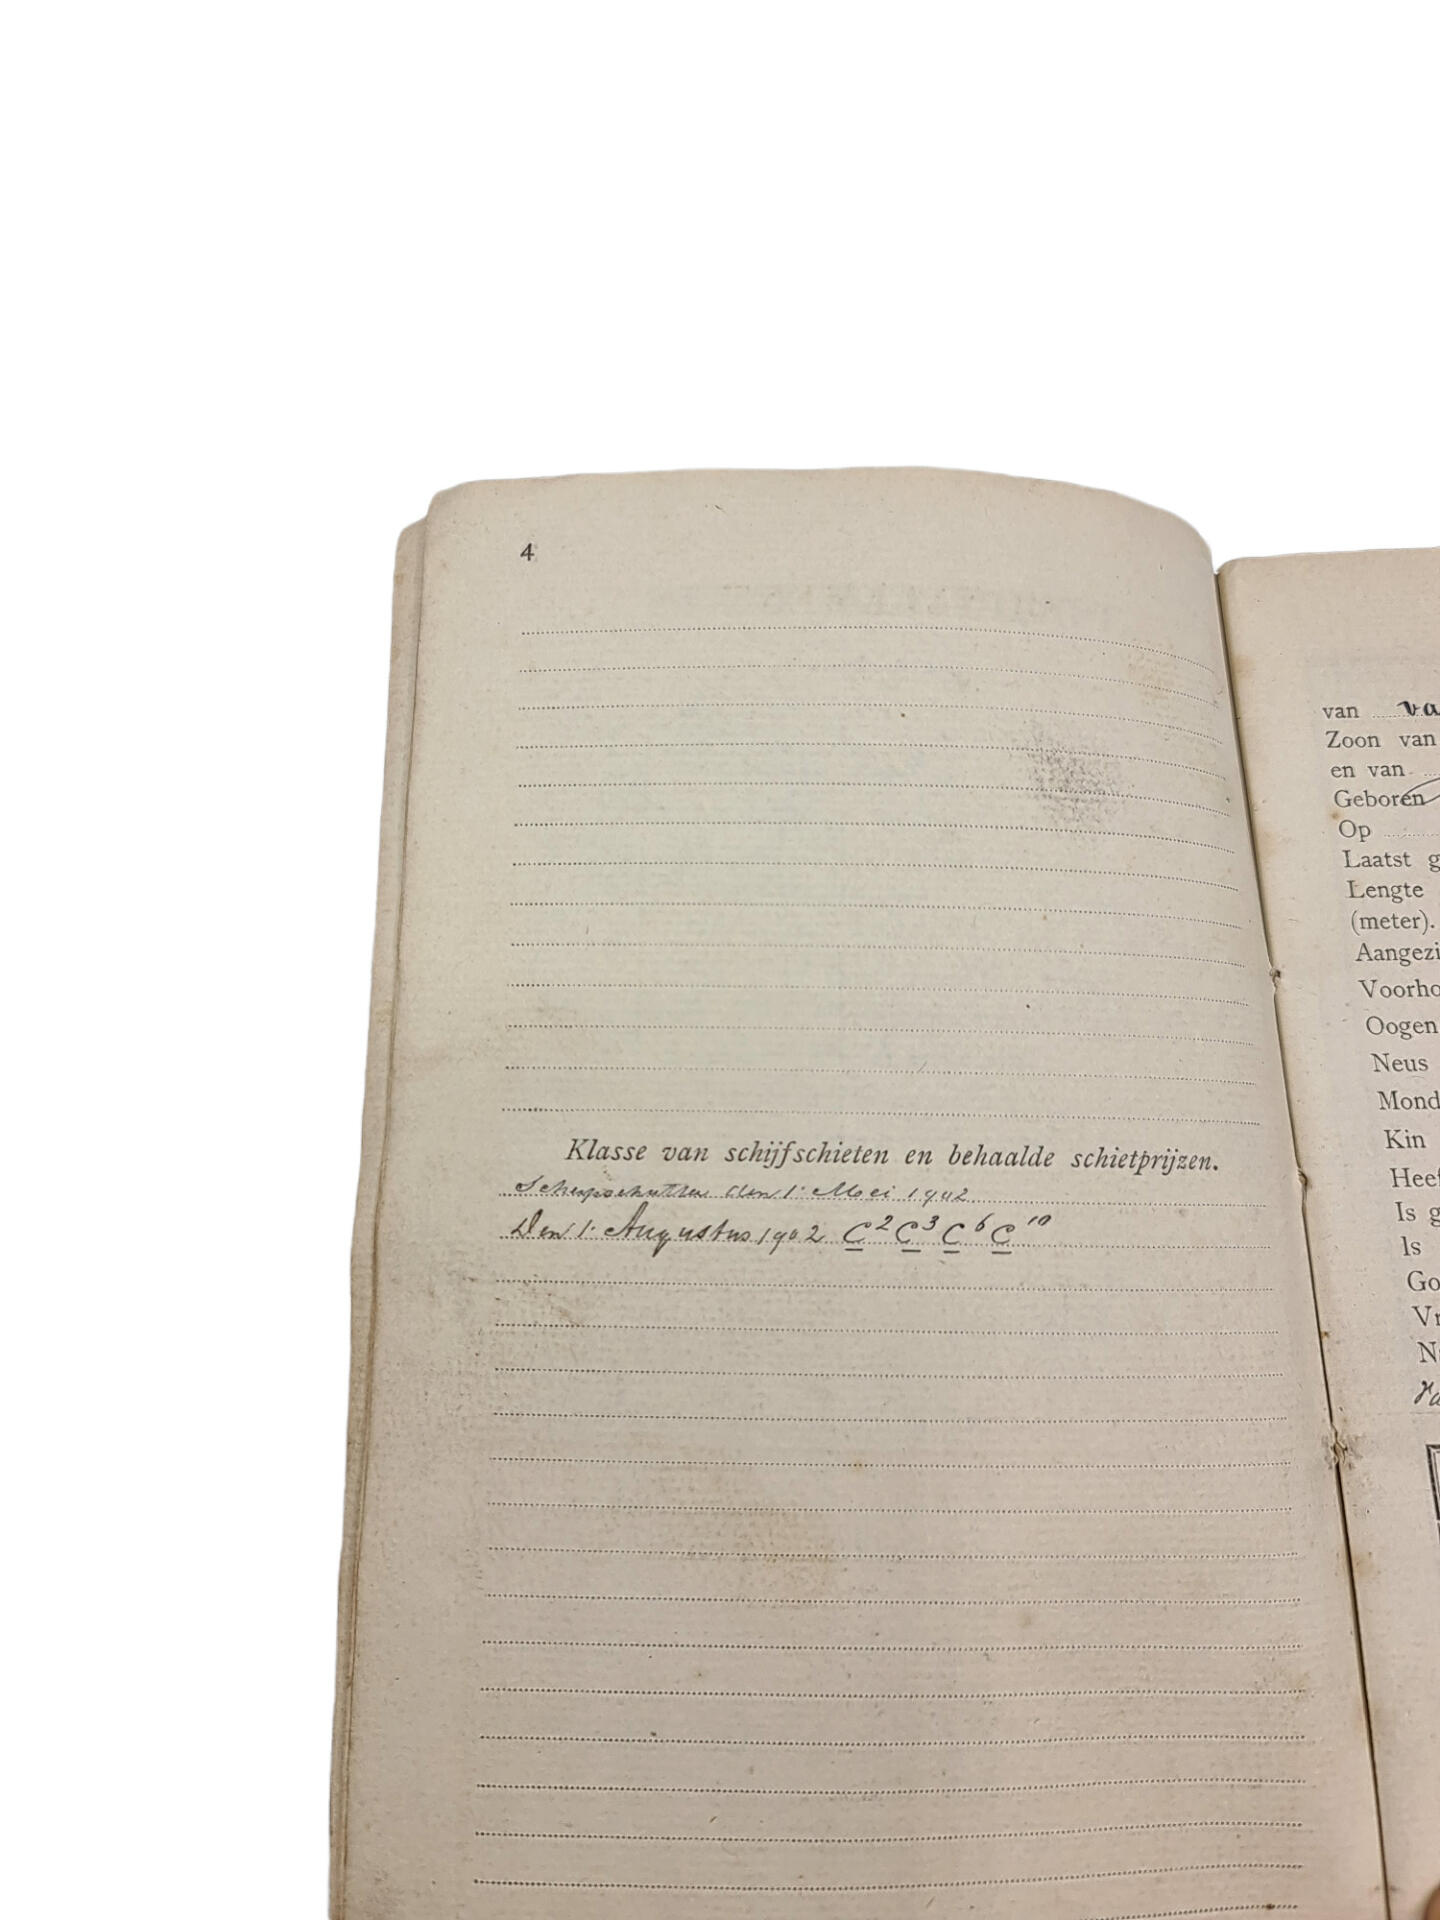 4
Klasse van schijfschieten en behaalde schietprijzen.
Scherpschutter den 1. Mei 1902
Den 1. Augustus 1902 C² C³ C⁶ C¹⁰
van va
Zoon van
en van
Geboren
Op
Laatst g
Lengte
(meter).
Aangezi
Voorho
Oogen
Neus
Mond
Kin
Heef
Is g
Is
Go
Vr